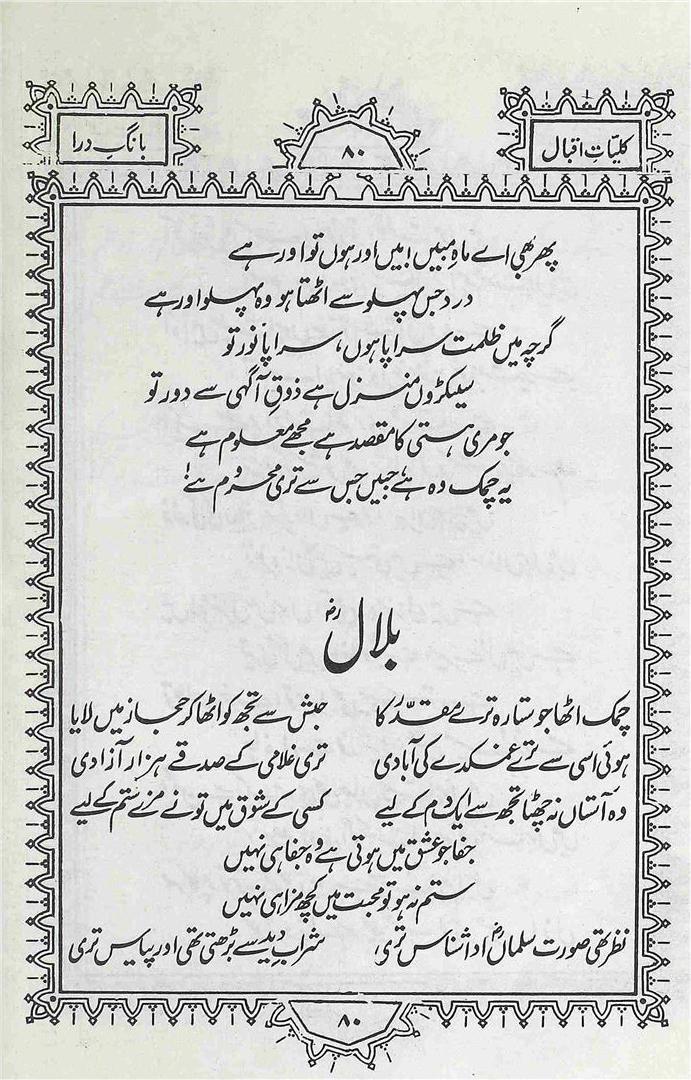 کلیاتِ اقبال
۸۰
بانگِ درا
پھر بھی اے ماہِ مبیں! میں اور ہوں تو اور ہے
درد جس پہلو سے اٹھتا ہو وہ پہلو اور ہے
گرچہ میں ظلمت سراپا ہوں، سراپا نور تو
سیکڑوں منزل ہے ذوقِ آگہی سے دور تو
جو مری ہستی کا مقصد ہے مجھے معلوم ہے
یہ چمک وہ ہے جبیں جس سے تری محروم ہے!
بلالؓ
چمک اٹھا جو ستارہ ترے مقدّر کا حبش سے تجھ کو اٹھا کر حجاز میں لایا
ہوئی اسی سے ترے غمکدے کی آبادی تری غلامی کے صدقے ہزار آزادی
وہ آستاں نہ چھٹا تجھ سے ایک دم کے لیے کسی کے شوق میں تو نے مزے ستم کے لیے
جفا جو عشق میں ہوتی ہے وہ جفا ہی نہیں
ستم نہ ہو تو محبت میں کچھ مزا ہی نہیں
نظر تھی صورتِ سلماںؓ ادا شناس تری شرابِ دید سے بڑھتی تھی اور پیاس تری
۸۰